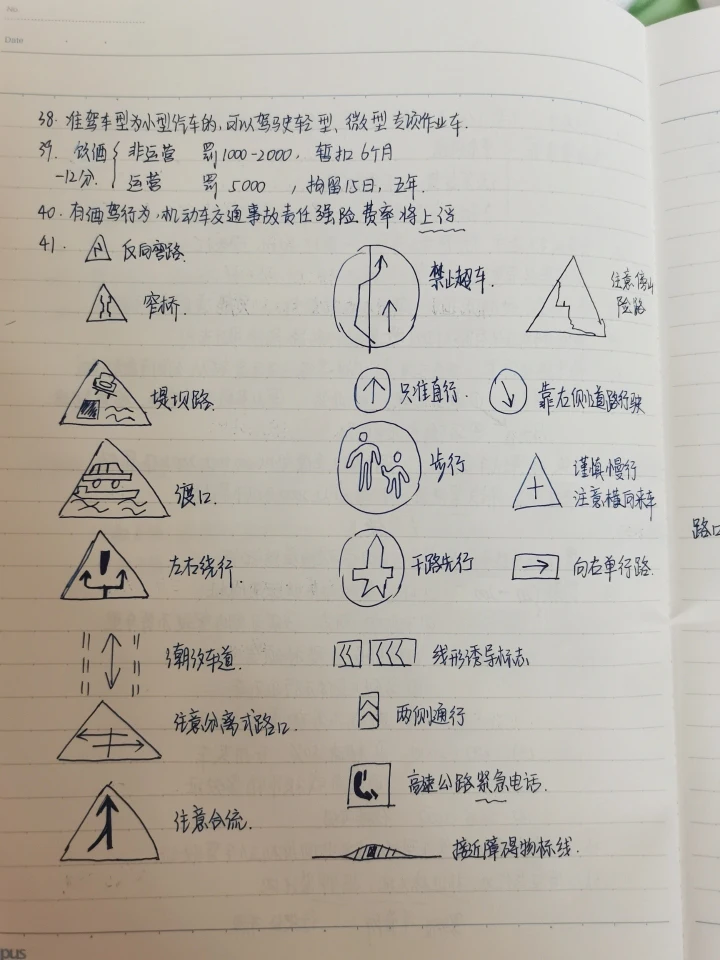 No.
Date
38. 准驾车型为小型汽车的,可以驾驶轻型、微型专项作业车.
39. 饮酒 非运营 罚1000-2000, 暂扣6个月
-12分. 运营 罚5000 , 拘留15日, 五年.
40. 有酒驾行为,机动车交通事故责任强险费率将上浮
41. 反向弯路.
禁止超车.
注意傍山
险路
窄桥.
堤坝路.
只准直行.
靠右侧道路行驶
渡口.
步行
谨慎慢行
注意横向来车
左右绕行.
干路先行
向右单行路.
潮汐车道.
线形诱导标志
注意分离式路口.
两侧通行
高速公路紧急电话.
注意合流.
接近障碍物标线.
路口
pus